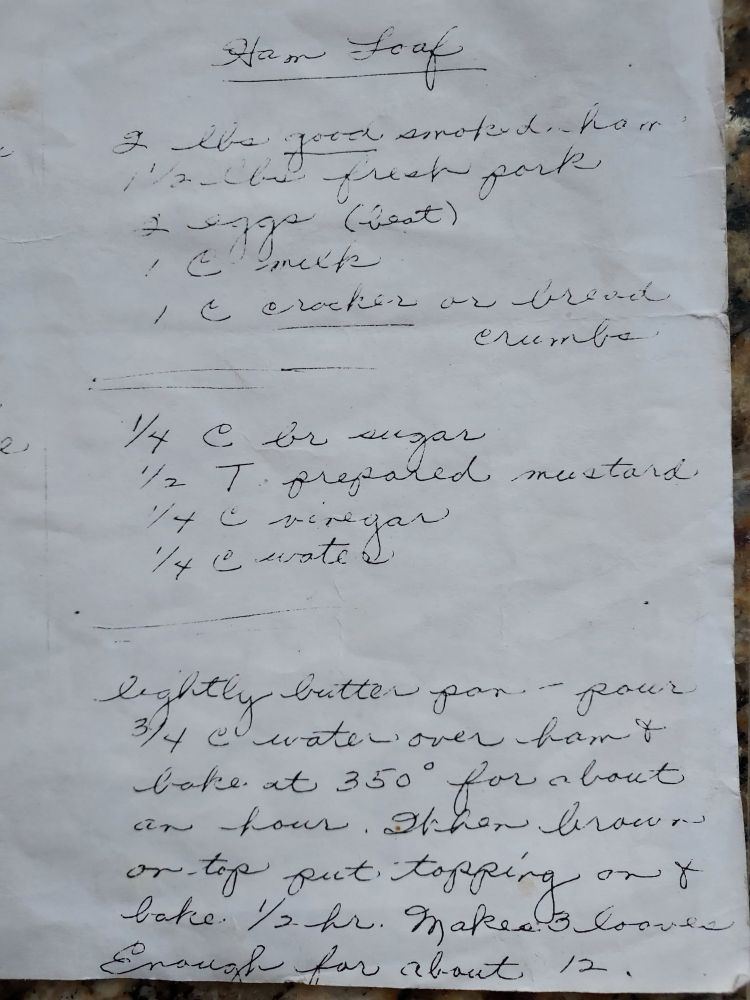 Ham Loaf
2 lbs good smoked ham
1 1/2 lbs fresh pork
2 eggs (beat)
1 C milk
1 C cracker or bread
crumbs
1/4 C br sugar
1/2 T. prepared mustard
1/4 C vinegar
1/4 C water
lightly butter pan - pour
3/4 C water over ham &
bake at 350° for about
an hour. When brown
on top put topping on &
bake 1/2 hr. Makes 3 loaves
Enough for about 12.